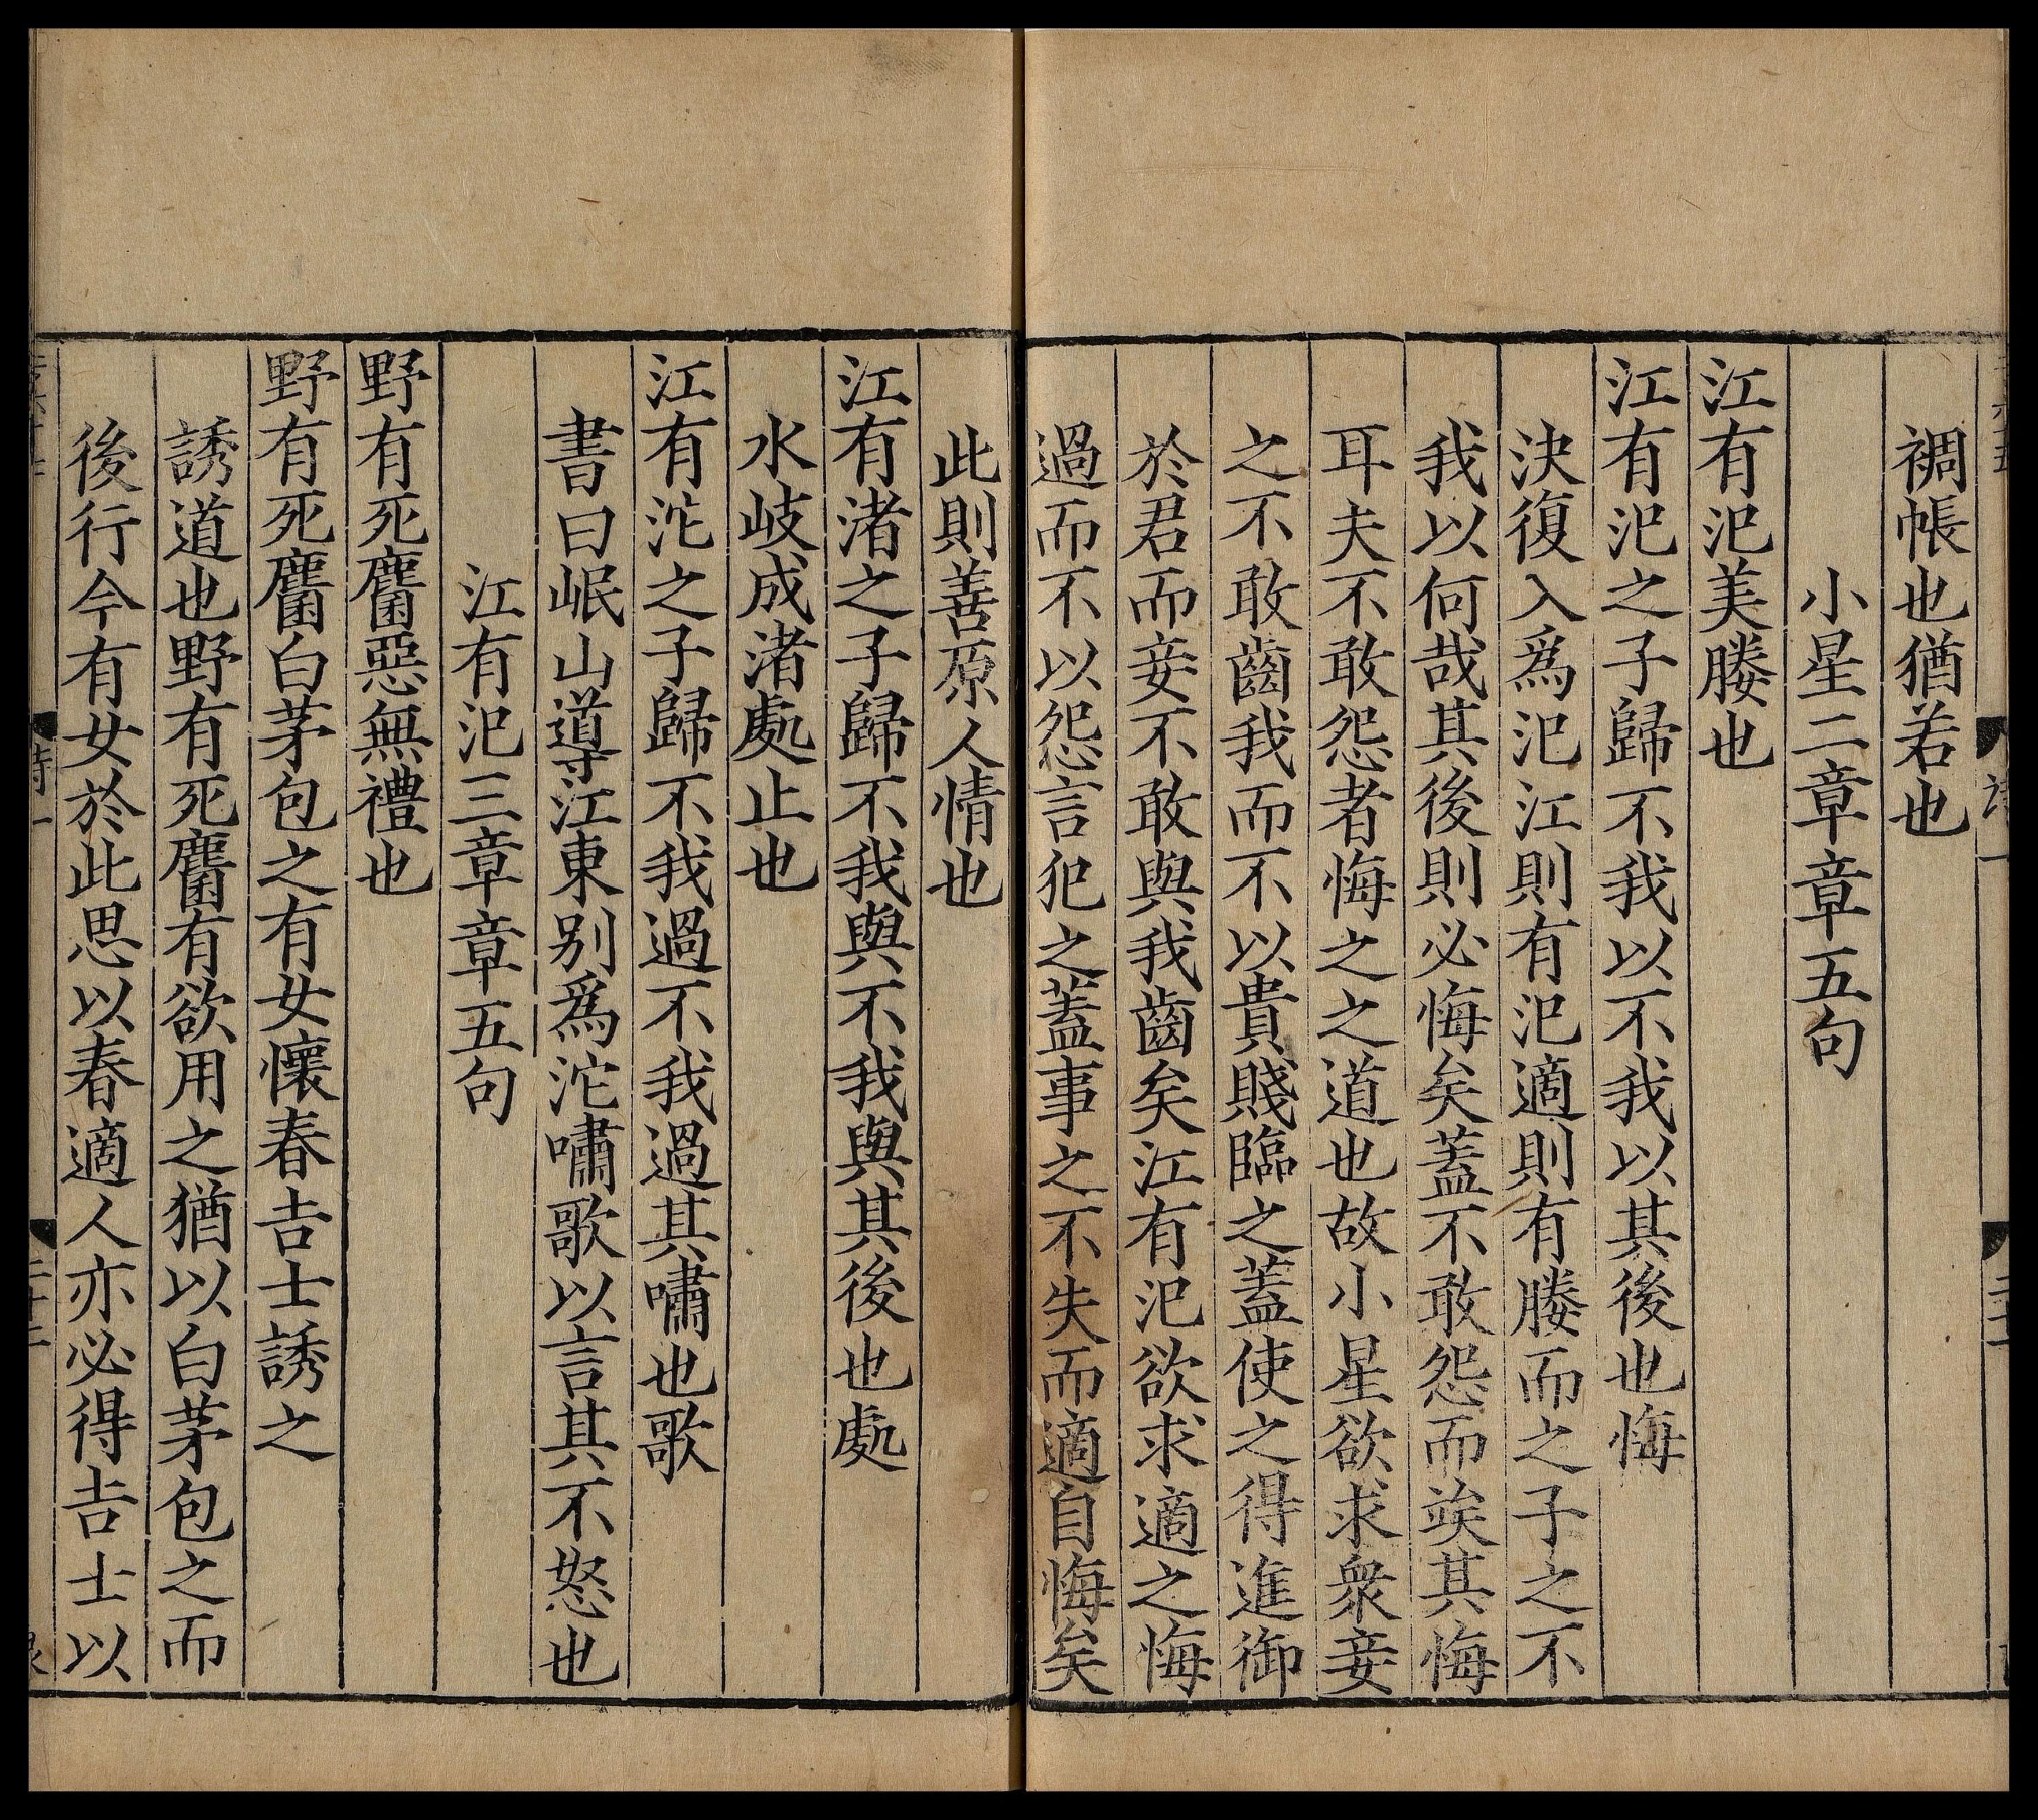 裯帳也猶若也
小星二章章五句
江有汜美媵也
江有汜之子歸不我以不我以其後也悔
決復入爲汜江則有汜適則有媵而之子之不
我以何哉其後則必悔矣蓋不敢怨而竢其悔
耳夫不敢怨者悔之之道也故小星欲求衆妾
之不敢齒我而不以貴賤臨之蓋使之得進御
於君而妾不敢與我齒矣江有汜欲求適之悔
過而不以怨言犯之蓋事之不失而適自悔矣
此則善原人情也
江有渚之子歸不我與不我與其後也處
水岐成渚處止也
江有沱之子歸不我過不我過其嘯也歌
書曰岷山導江東别爲沱嘯歌以言其不怒也
江有汜三章章五句
野有死麕惡無禮也
野有死麕白茅包之有女懷春吉士誘之
誘道也野有死麕有欲用之猶以白茅包之而
後行今有女於此思以春適人亦必得吉士以
詩一
二十二